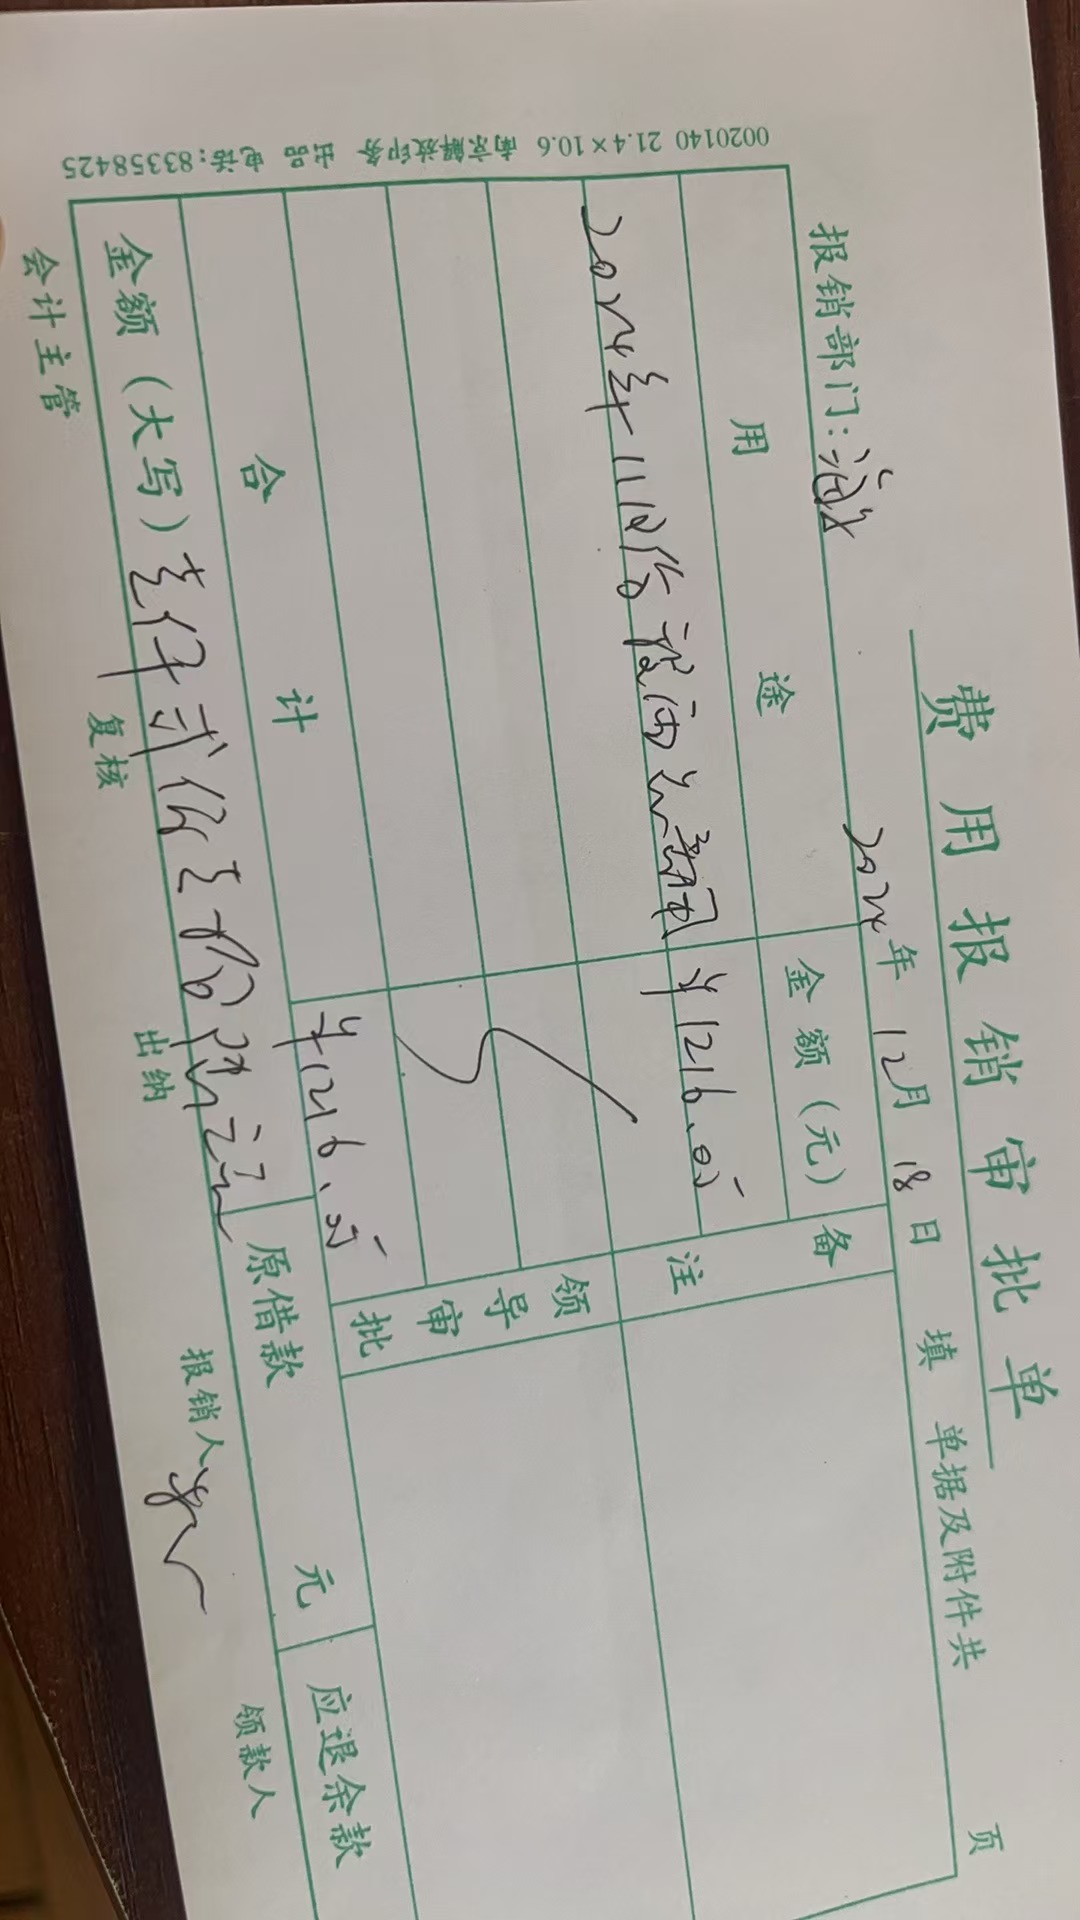 费用报销审批单
报销部门: 2024年 12月 18日 填 单据及附件共 页
用途 金额(元) 备注
2024年11月份 ¥1216.05
领导审批
合计 ¥1216.05
金额(大写)壹仟贰佰壹拾 原借款 元 应退余款
会计主管 复核 出纳 报销人 领款人
0020140 21.4×10.6 南京解放印务 出品 电话:83358425